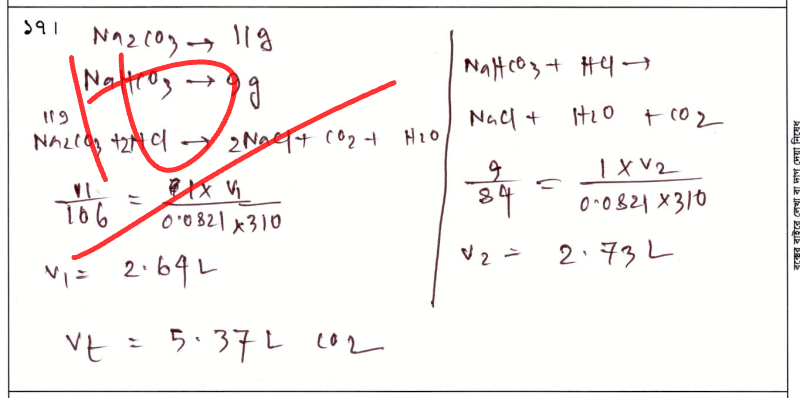 ১৭১
Na2CO3 → 11g
NaHCO3 → 9g
11g
Na2CO3 + 2HCl → 2NaCl + CO2 + H2O
11/106 = 1 x V1/0.0821 x 310
V1 = 2.64 L
Vt = 5.37 L CO2
NaHCO3 + HCl →
NaCl + H2O + CO2
9/84 = 1 x V2/0.0821 x 310
V2 = 2.73 L
বক্সের বাইরে লেখা বা দাগ দেয়া নিষেধ